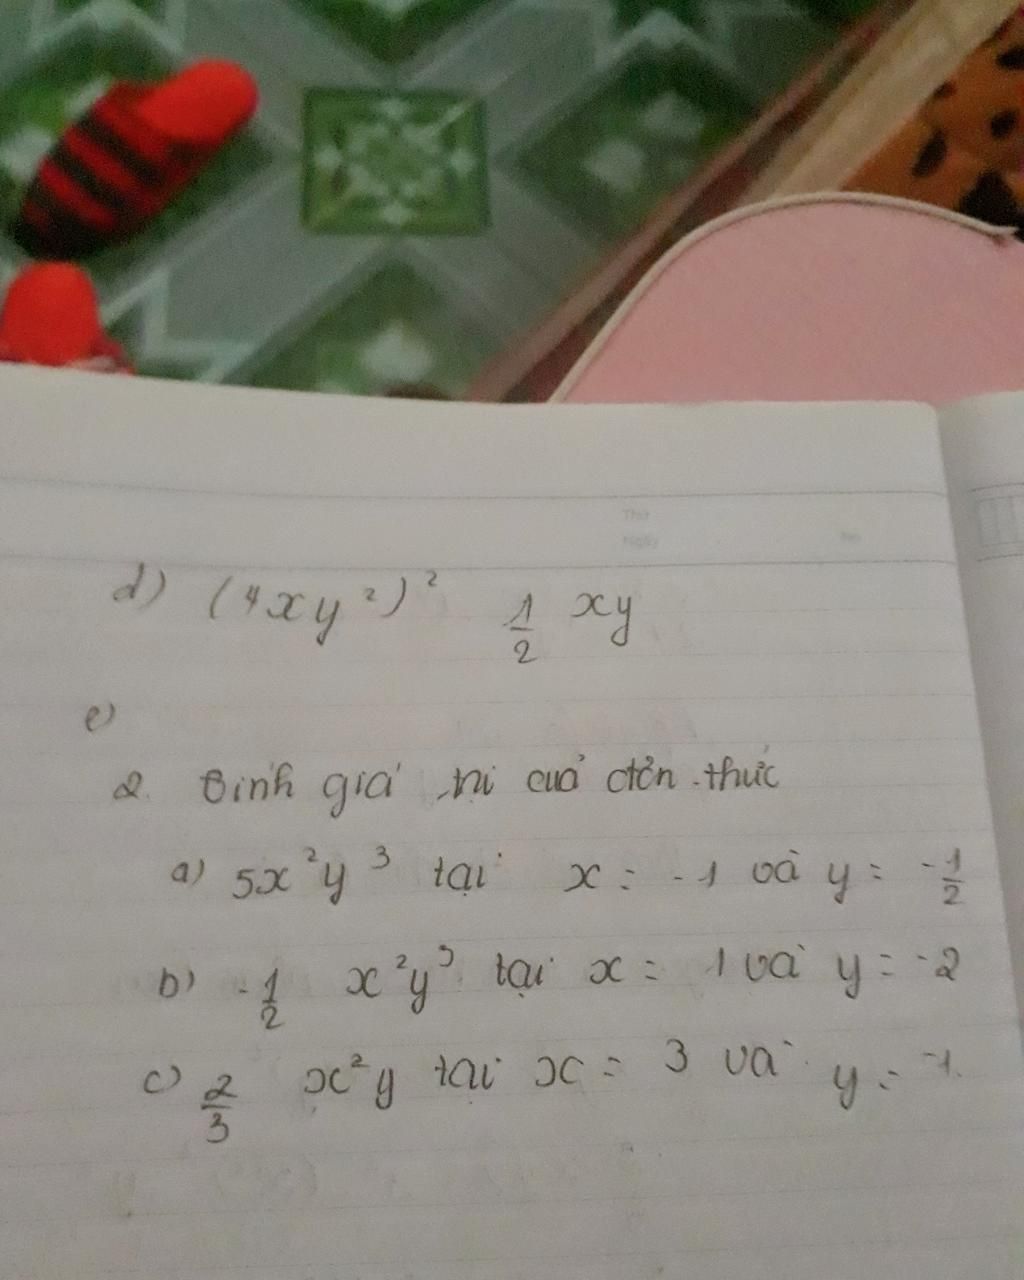 Thứ
Ngày No
d) (4xy²)² 1/2 xy
e)
2. Tính giá trị của đơn thức
a) 5x²y³ tại x = -1 và y = -1/2
b) -1/2 x²y³ tại x = 1 và y = -2
c) 2/3 x²y tại x = 3 và y = -1.